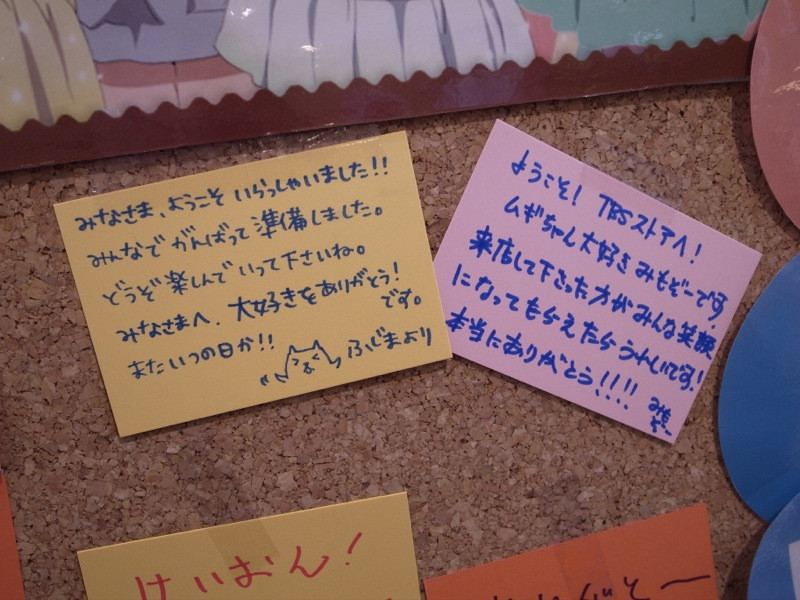 みなさま、ようこそ いらっしゃいました!!
みんなで がんばって 準備しました。
どうぞ 楽しんで いって下さいね。
みなさまへ、大好きをありがとう!
です。
またいつの日か!! ふじまより
ようこそ! TBSストアへ!
ムギちゃん大好き みもぞーです
来店して下さった方がみんな笑顔
になってもらえたらうれしいです!
本当にありがとう!!!!
けいおん!